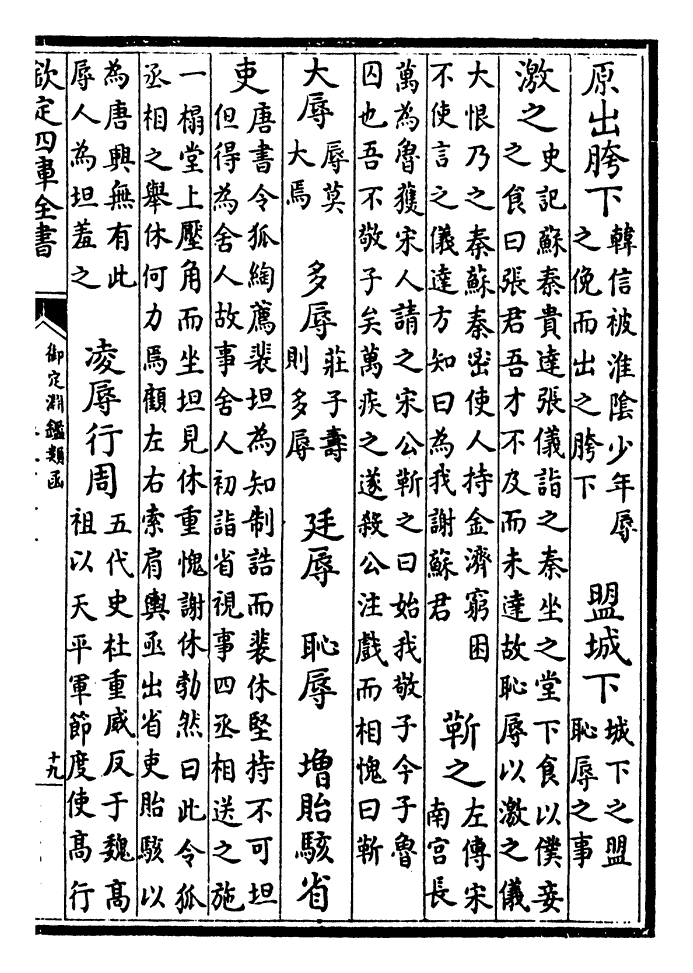 原出胯下
韓信被淮陰少年辱
之俛而出之胯下
盟城下
城下之盟
恥辱之事
激之
史記蘇秦貴達張儀詣之秦坐之堂下食以僕妾
之食曰張君吾才不及而未達故恥辱以激之儀
大恨乃之秦蘇秦密使人持金濟窮困
不使言之儀達方知曰為我謝蘇君
靳之
左傳宋
南宮長
萬為魯獲宋人請之宋公靳之曰始我敬子今子魯
囚也吾不敬子矣萬疾之遂殺公注戲而相愧曰靳
大辱
辱莫
大焉
多辱
莊子壽
則多辱
廷辱
恥辱
增貽駭省
吏
唐書令狐綯薦裴坦為知制誥而裴休堅持不可坦
但得為舍人故事舍人初詣省視事四丞相送之施
一榻堂上壓角而坐坦見休重愧謝休勃然曰此令狐
丞相之舉休何力焉顧左右索肩輿亟出省吏貽駭以
為唐興無有此
辱人為坦羞之
凌辱行周
五代史杜重威反于魏髙
祖以天平軍節度使髙行
欽定四庫全書
御定淵鑑類函
十九